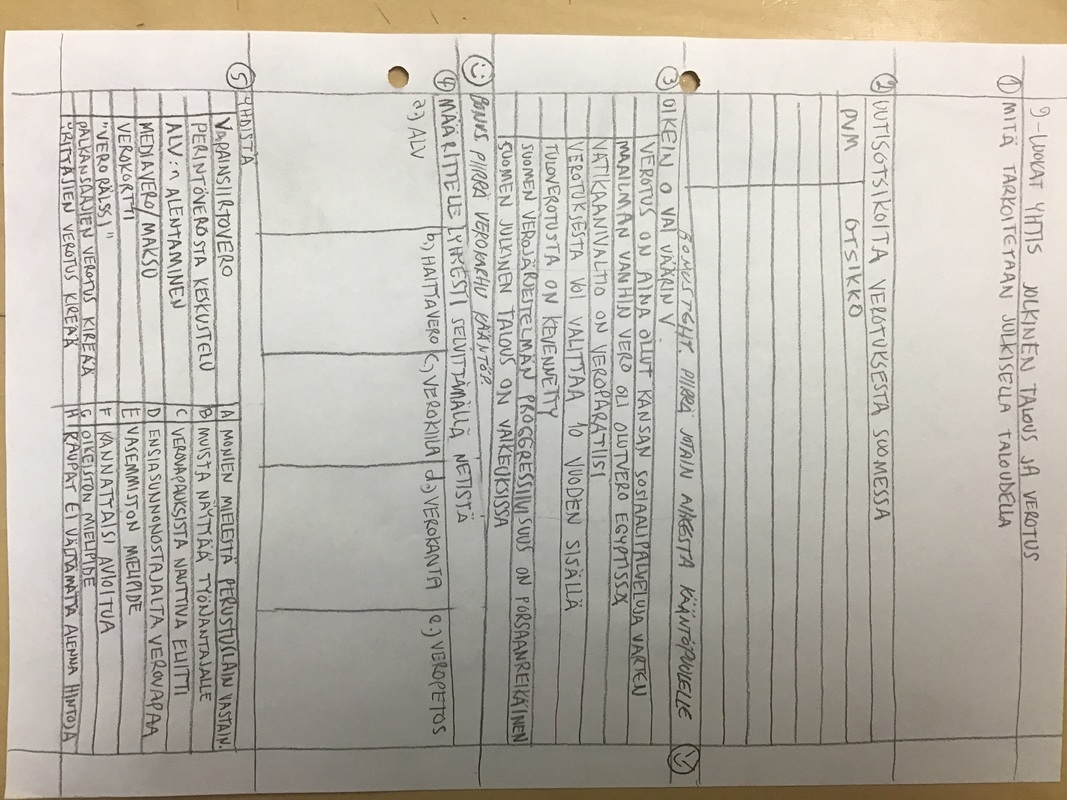 9-LUOKAT YHTIS JULKINEN TALOUS JA VEROTUS
① MITÄ TARKOITETAAN JULKISELLA TALOUDELLA
② UUTISOTSIKOITA VEROTUKSESTA SUOMESSA
PVM OTSIKKO
BONUSTEHT. PIIRRÄ JOTAIN AIHEESTA KÄÄNTÖPUOLELLE
③ OIKEIN O VAI VÄÄRIN V
VEROTUS ON AINA OLLUT KANSAN SOSIAALIPALVELUJA VARTEN
MAAILMAN VANHIN VERO OLI OLUTVERO EGYPTISSÄ
VATIKAANIVALTIO ON VEROPARATIISI
VEROTUKSESTA VOI VALITTAA 10 VUODEN SISÄLLÄ
TULOVEROTUSTA ON KEVENNETTY
SUOMEN VEROJÄRJESTELMÄN PROGGRESSIIVISUUS ON PORSAANREIKÄINEN
SUOMEN JULKINEN TALOUS ON VAIKEUKSISSA
BONUS PIIRRÄ VEROKARHU KÄÄNTÖP.
④ MÄÄRITTELE LYHYESTI SELVITTÄMÄLLÄ NETISTÄ
a.) ALV b.) HAITTAVERO c.) VEROKIILA d.) VEROKANTA e.) VEROPETOS
⑤ YHDISTÄ
VAPAINSIIRTOVERO A MONIEN MIELESTÄ PERUSTUSLAIN VASTAIN.
PERINTÖVEROSTA KESKUSTELU B MUISTA NÄYTTÄÄ TYÖNANTAJALLE
ALV:n ALENTAMINEN C VEROVAPAUKSISTA NAUTTIVA ELIITTI
MEDIAVERO/MAKSU D ENSIASUNNONOSTAJALTA VEROVAPAA
VEROKORTTI E VASEMMISTON MIELIPIDE
"VERORÄLSSI" F KANNATTAISI AVIOITUA
PALKANSAAJIEN VEROTUS KIREÄÄ G OIKEISTON MIELIPIDE
YRITTÄJIEN VEROTUS KIREÄÄ H KAUPAT EI VÄLTTÄMÄTTÄ ALENNA HINTOJA